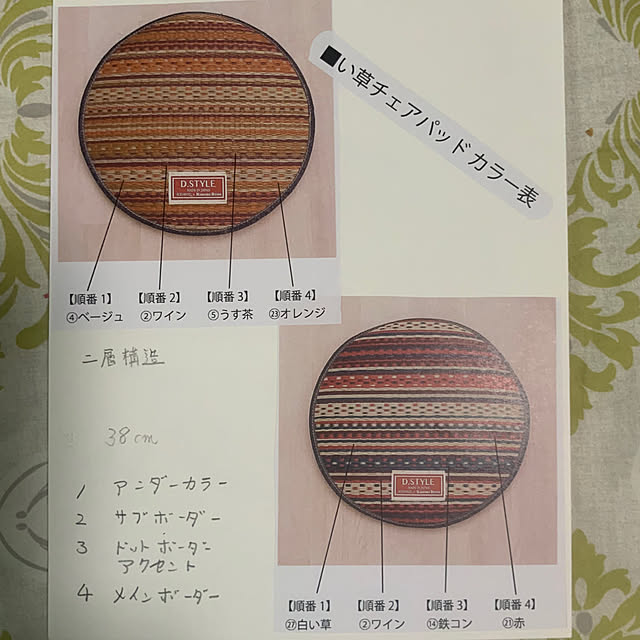 ■い草チェアパッドカラー表
D.STYLE
MADE IN JAPAN
【順番1】 【順番2】 【順番3】 【順番4】
④ベージュ ②ワイン ⑤うす茶 ㉓オレンジ
二層構造
38cm
1 アンダーカラー
2 サブボーダー
3 ドットボーダー
アクセント
4 メインボーダー
D.STYLE
MADE IN JAPAN
【順番1】 【順番2】 【順番3】 【順番4】
㉗白い草 ②ワイン ⑭鉄コン ㉑赤